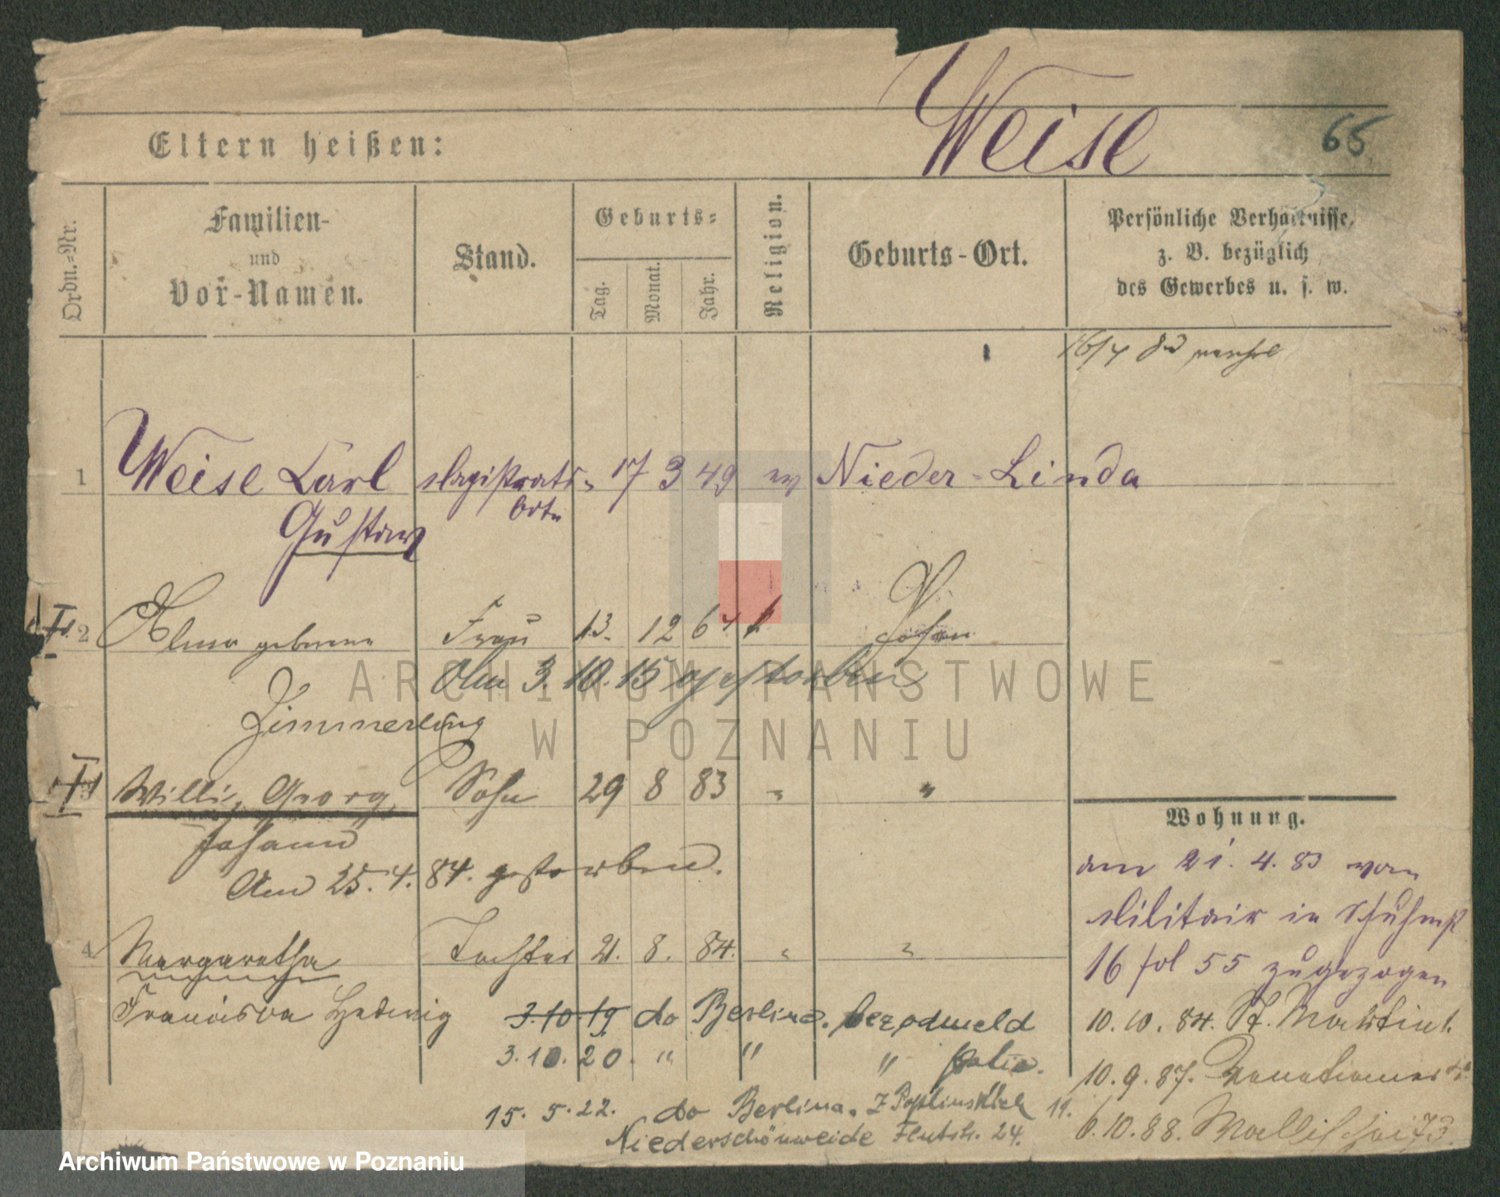 Weise
65
Eltern heißen:
Ordn.-Nr.
Familien-
und
Vor-Namen.
Stand.
Geburts-
Tag.
Monat.
Jahr.
Religion.
Geburts-Ort.
Persönliche Verhältnisse,
z. B. bezüglich
des Gewerbes u. s. w.
16/4 83
1 Weise Carl Magistrats- 17 3 49 ev Nieder-Linda
Gustav
I. 2 Alma geborene Frau 13. 12 64 Posen
Am 3. 10. 15 gestorben
Zimmerling
Willi, Georg, Sohn 29 8 83 " "
Johann
Am 25. 4. 84. gestorben.
4 Margaretha Tochter 21. 8. 84. " "
Franciska Hedwig 3.10 19 do Berlina. bez odmeld
3. 10. 20. " " "
15. 5. 22. do Berlina. Z
Niederschönweide Flutstr. 24.
Wohnung.
am 21. 4. 83 vom
Militair in Schuhm.
16 fol 55 zugezogen
10. 10. 84. St. Martin 1.
10. 9. 87.
6. 10. 88. Wallischei 73.
ARCHIWUM PAŃSTWOWE
W POZNANIU
Archiwum Państwowe w Poznaniu